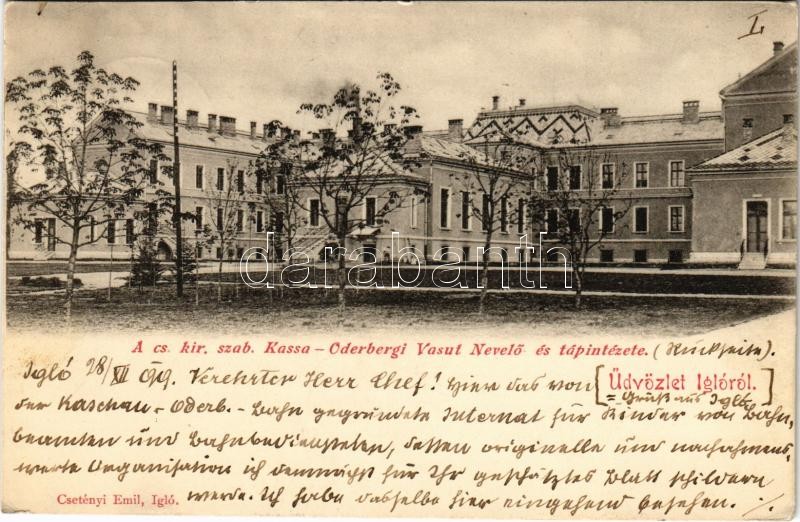 I.
darabanth
A cs. kir. szab. Kassa–Oderbergi Vasut Nevelő és tápintézete. (Rückseite).
Igló 28/XII 099. Verehrter Herr Chef! Hier das von [Üdvözlet Iglóról.
= Gruß aus Igló]
der Kaschau-Oderb.-Bahn gegründete Internat für Kinder von Bahn-
beamten und Bahnbediensteten, dessen originelle und nachahmens-
werte Organisation ich demnächst für Ihr geschätztes Blatt schildern
werde. Ich habe dasselbe hier eingehend besehen. ./.
Csetényi Emil, Igló.